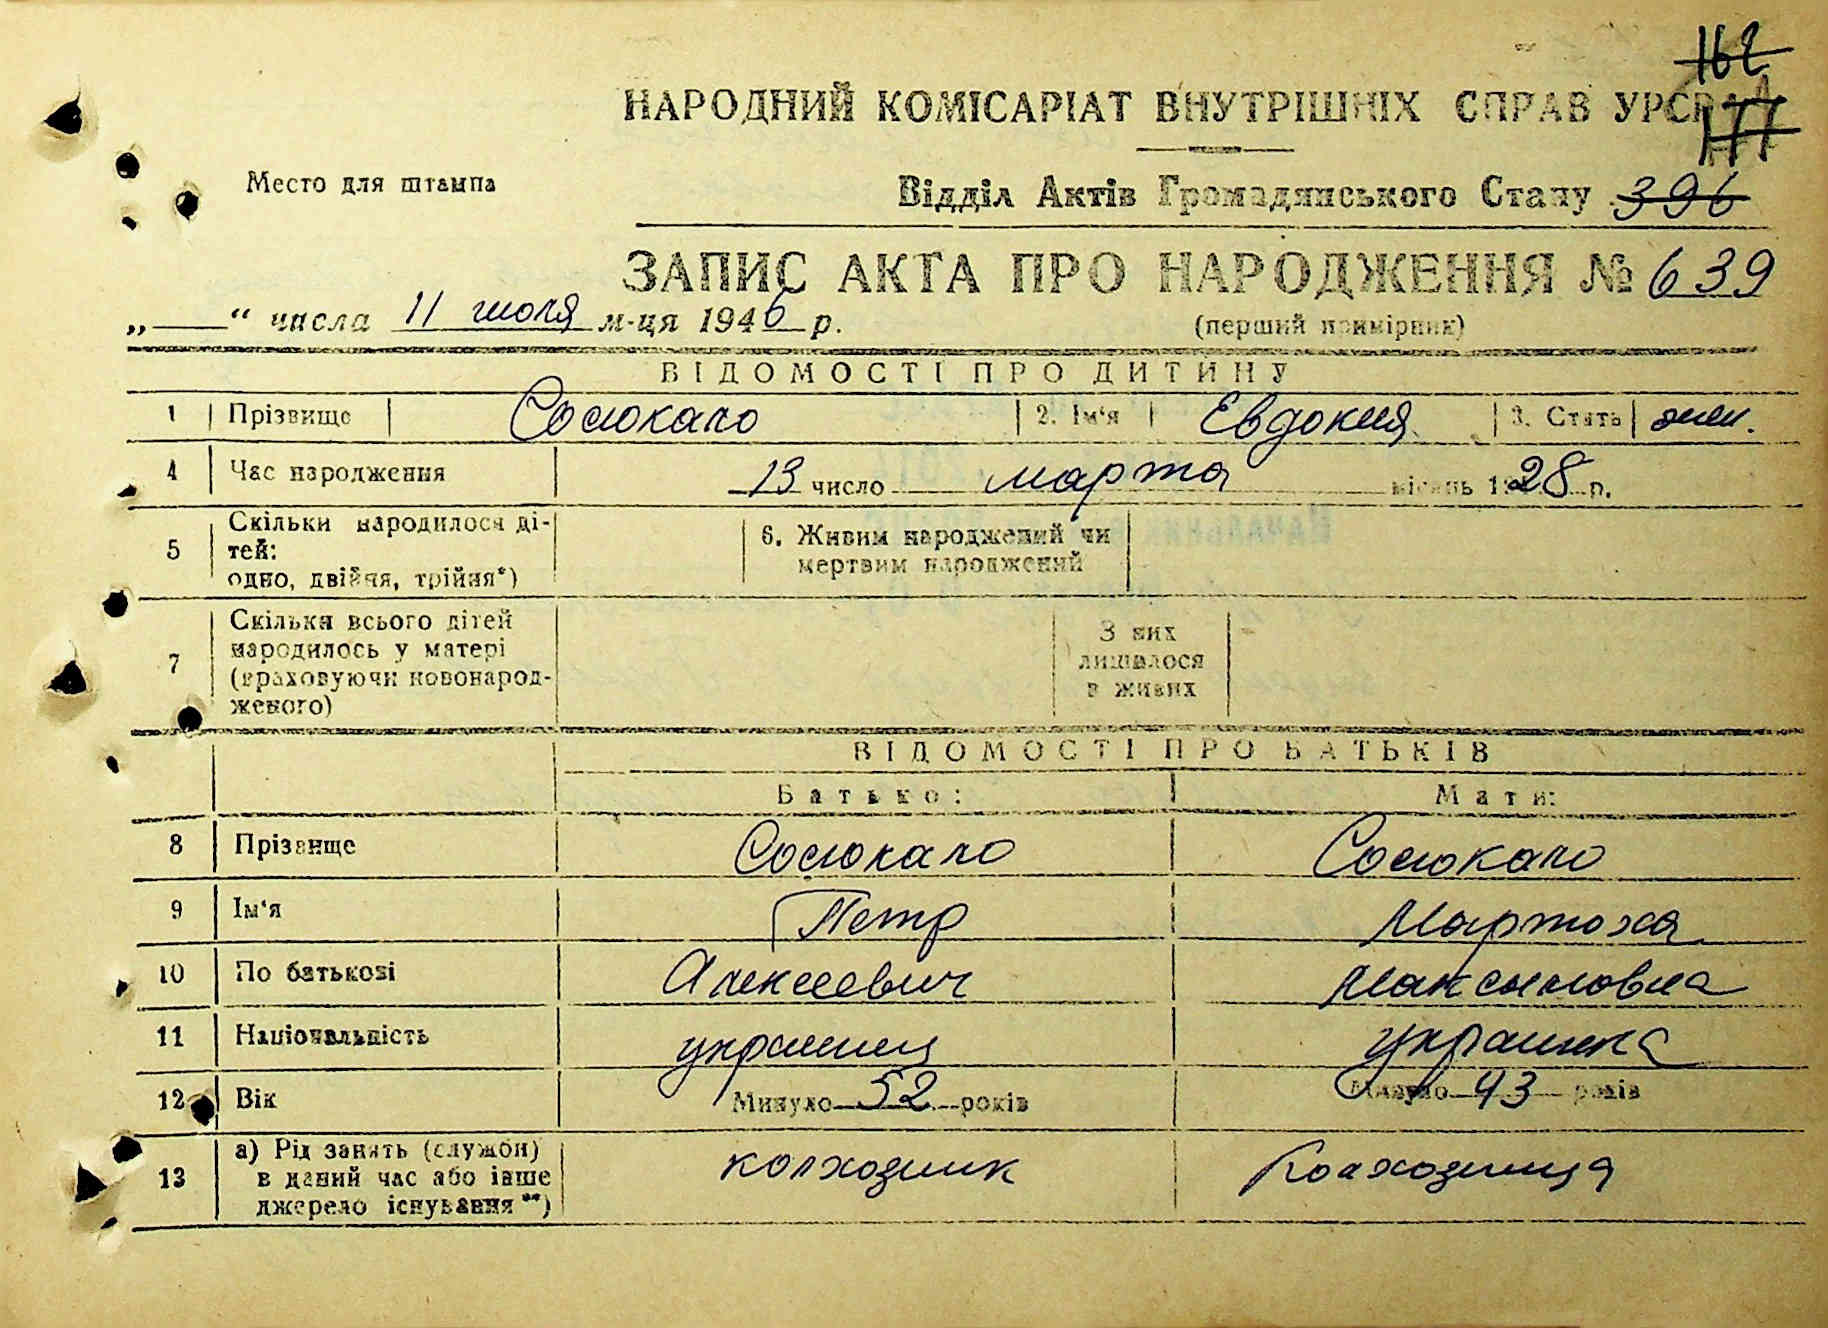 162
НАРОДНИЙ КОМІСАРІАТ ВНУТРІШНІХ СПРАВ УРСР
177
Место для штампа
Відділ Актів Громадянського Стану 396
ЗАПИС АКТА ПРО НАРОДЖЕННЯ № 639
„ “ числа 11 июля м-ця 1946 р. (перший примірник)
ВІДОМОСТІ ПРО ДИТИНУ
1 Прізвище Сосюкало 2. Ім‘я Евдокия 3. Стать жен.
4 Час народження 13 число марта місяць 1928 р.
5 Скільки народилося дітей: одно, двійня, трійня*) 6. Живим народжений чи мертвим народжений
7 Скільки всього дітей народилось у матері (враховуючи новонародженого) З них лишилося в живих
ВІДОМОСТІ ПРО БАТЬКІВ
Батько: Мати:
8 Прізвище Сосюкало Сосюкало
9 Ім‘я Петр Мартоха
10 По батькові Алексеевич Максимовна
11 Національність украинец украинка
12 Вік Минуло 52 років Минуло 43 років
13 а) Рід занять (служби) в даний час або інше джерело існування**) колхозник Колхозница